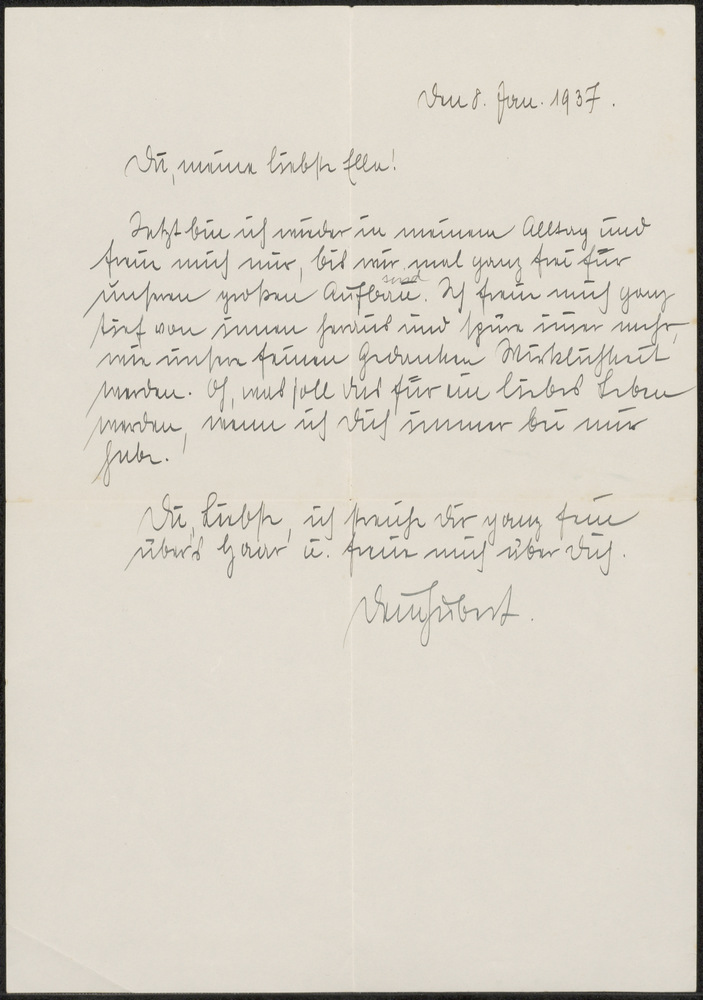 Den 8. Jan. 1937.
Du, meine liebste Ella!
Jetzt bin ich wieder in meinem Alltag und
freue mich nur, bis wir mal ganz frei für
unseren großen Aufbau sind. Ich freue mich ganz
tief von innen heraus und spüre immer mehr,
wie unsere feinen Gedanken Wirklichkeit
werden. Oh, was soll das für ein liebes Leben
werden, wenn ich Dich immer bei mir
habe.
Du, Liebste, ich streiche Dir ganz fein
über's Haar u. freue mich über Dich.
Dein Hubert.